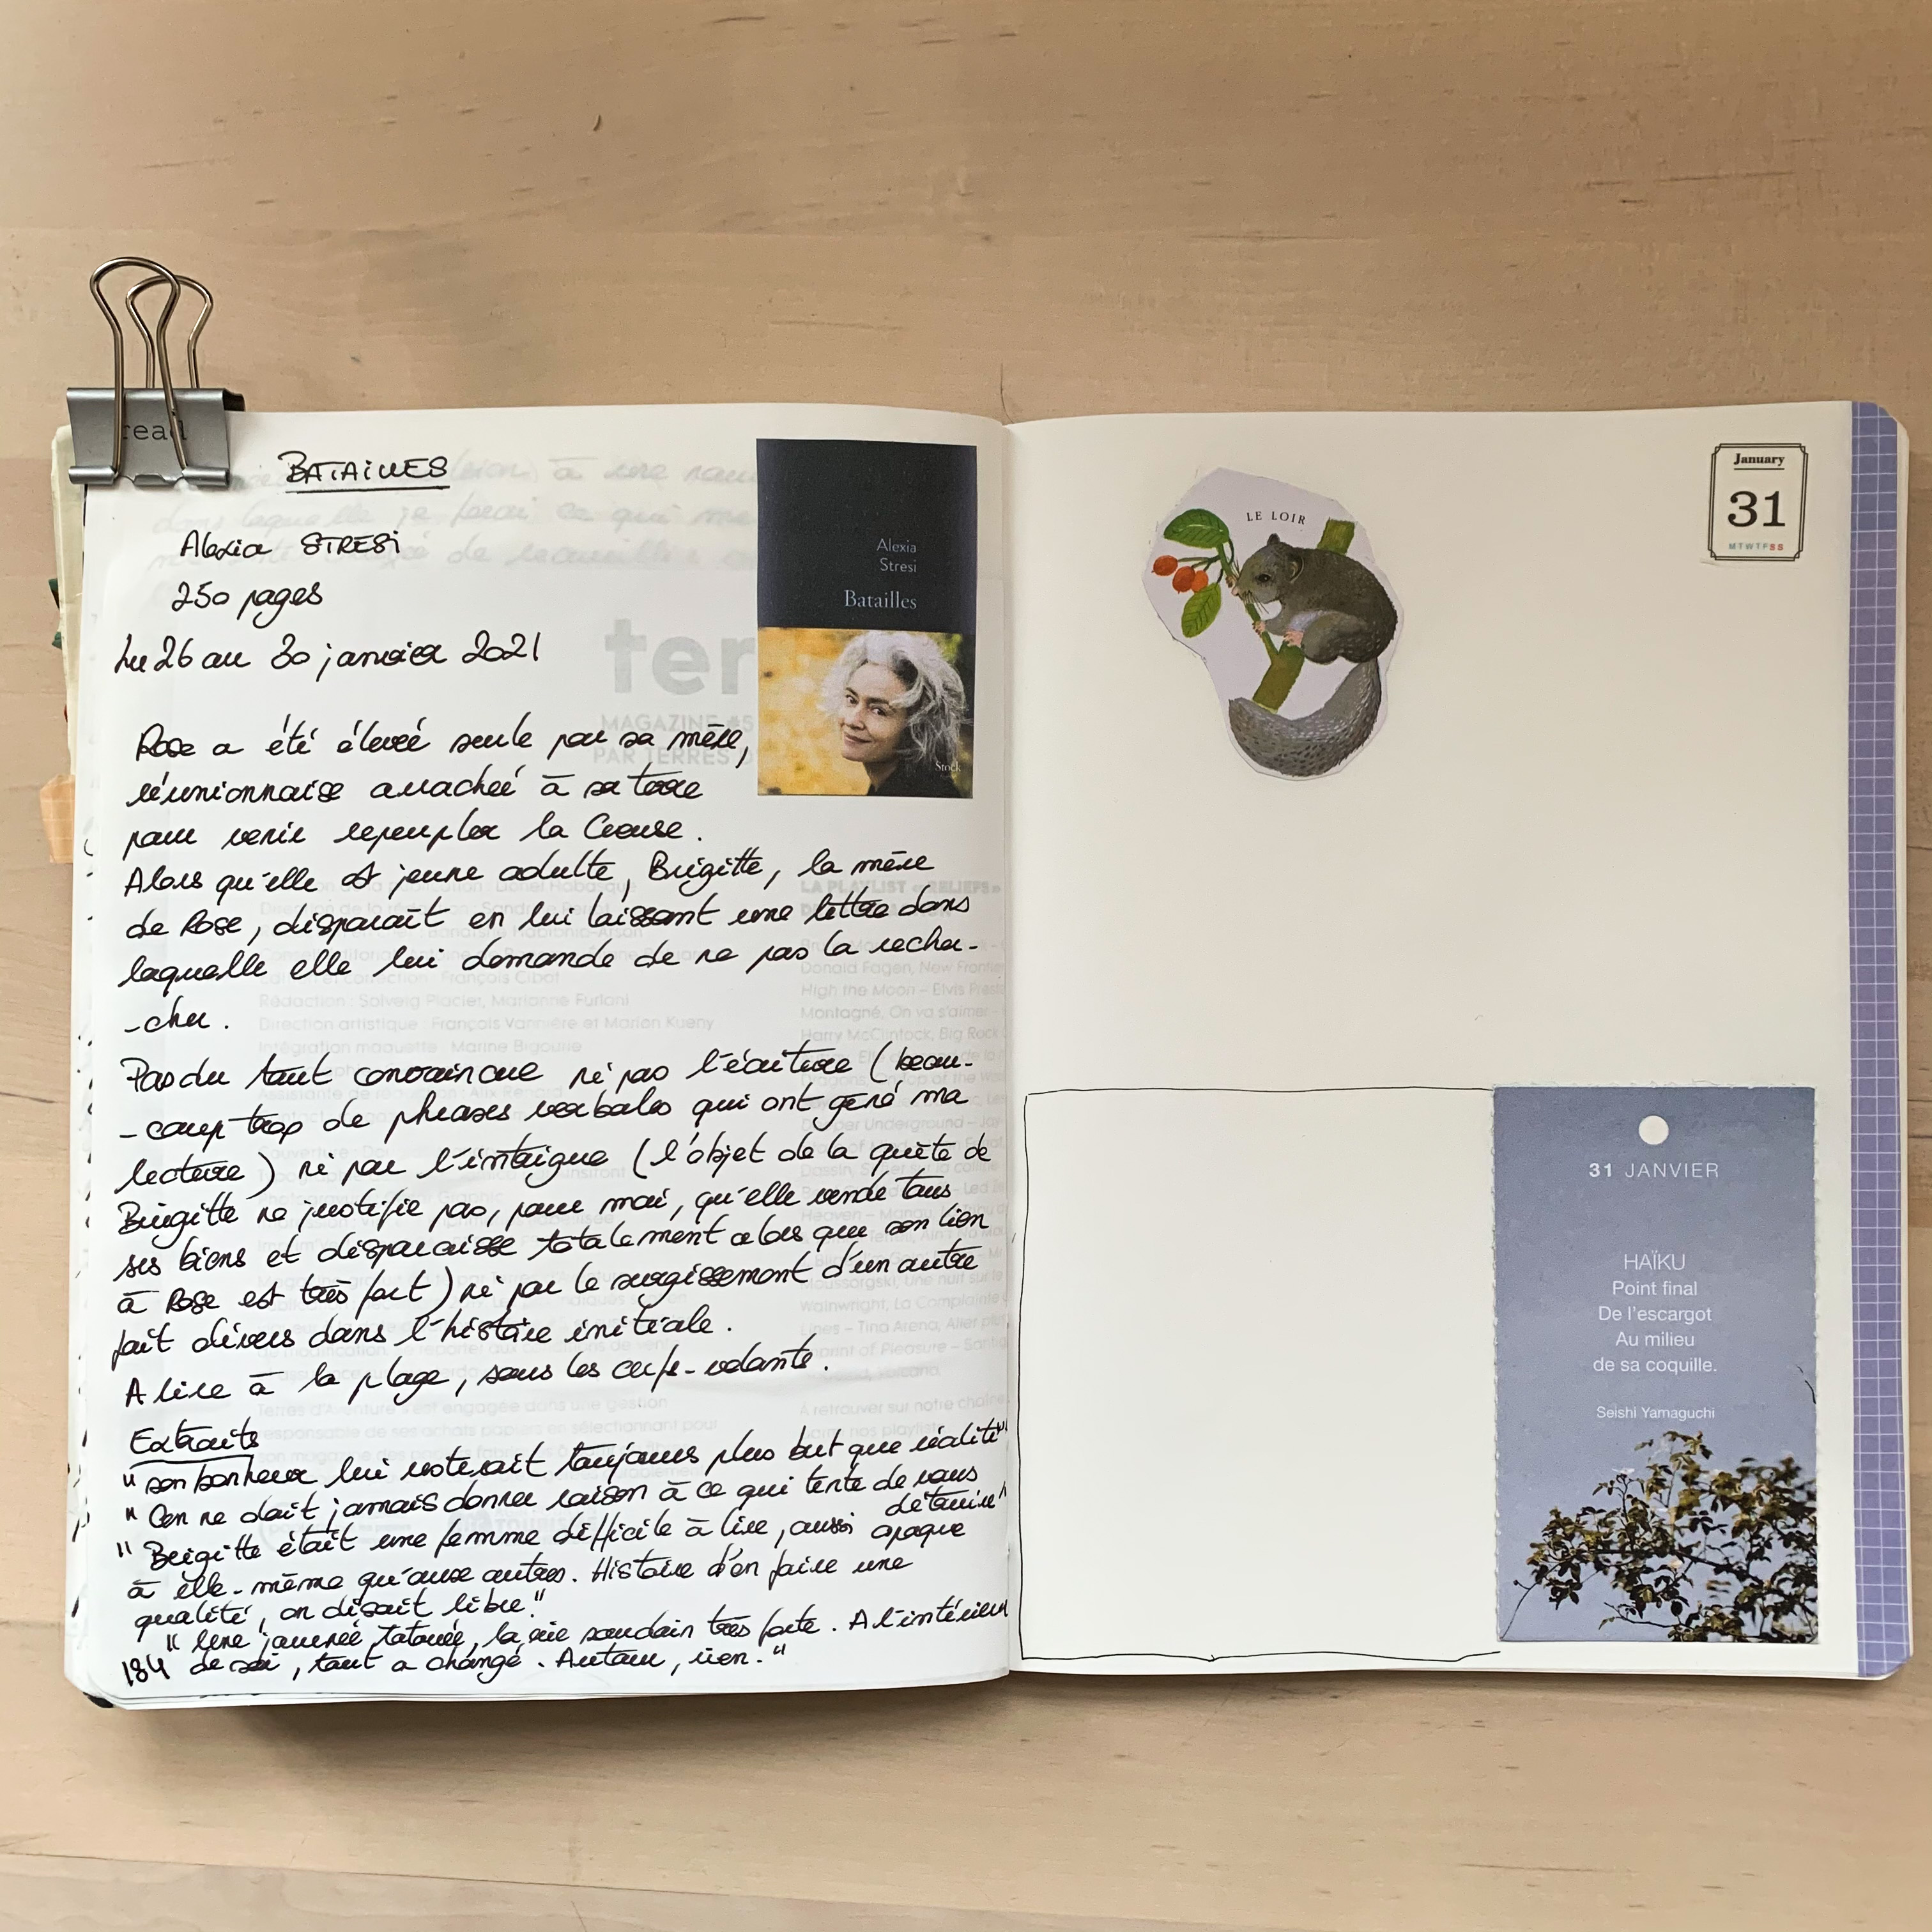 read
BATAILLES
Alexia STRESI
250 pages
Lu 26 au 30 janvier 2021
Alexia
Stresi
Batailles
Stock
Rose a été élevée seule par sa mère,
réunionnaise arrachée à sa terre
pour venir repeupler la Creuse.
Alors qu'elle est jeune adulte, Brigitte, la mère
de Rose, disparaît en lui laissant une lettre dans
laquelle elle lui demande de ne pas la recher-
-cher.
Pas du tout convaincue ni par l'écriture (beau-
-coup trop de phrases verbales qui ont gêné ma
lecture) ni par l'intrigue (l'objet de la quête de
Brigitte ne justifie pas, pour moi, qu'elle vende tous
ses biens et disparaisse totalement alors que son lien
à Rose est très fort) ni par le surgissement d'un autre
fait divers dans l'histoire initiale.
A lire à la plage, sous les cerfs-volants.
Extraits
" son bonheur lui resterait toujours plus but que réalité"
" On ne doit jamais donner raison à ce qui tente de vous
détruire"
" Brigitte était une femme difficile à lire, aussi opaque
à elle-même qu'aux autres. Histoire d'en faire une
qualité, on disait libre."
" Une journée tatouée, la vie soudain très forte. A l'intérieur
184 de soi, tout a changé. Autour, rien."
LE LOIR
January
31
MTWTFSS
31 JANVIER
HAÏKU
Point final
De l'escargot
Au milieu
de sa coquille.
Seishi Yamaguchi